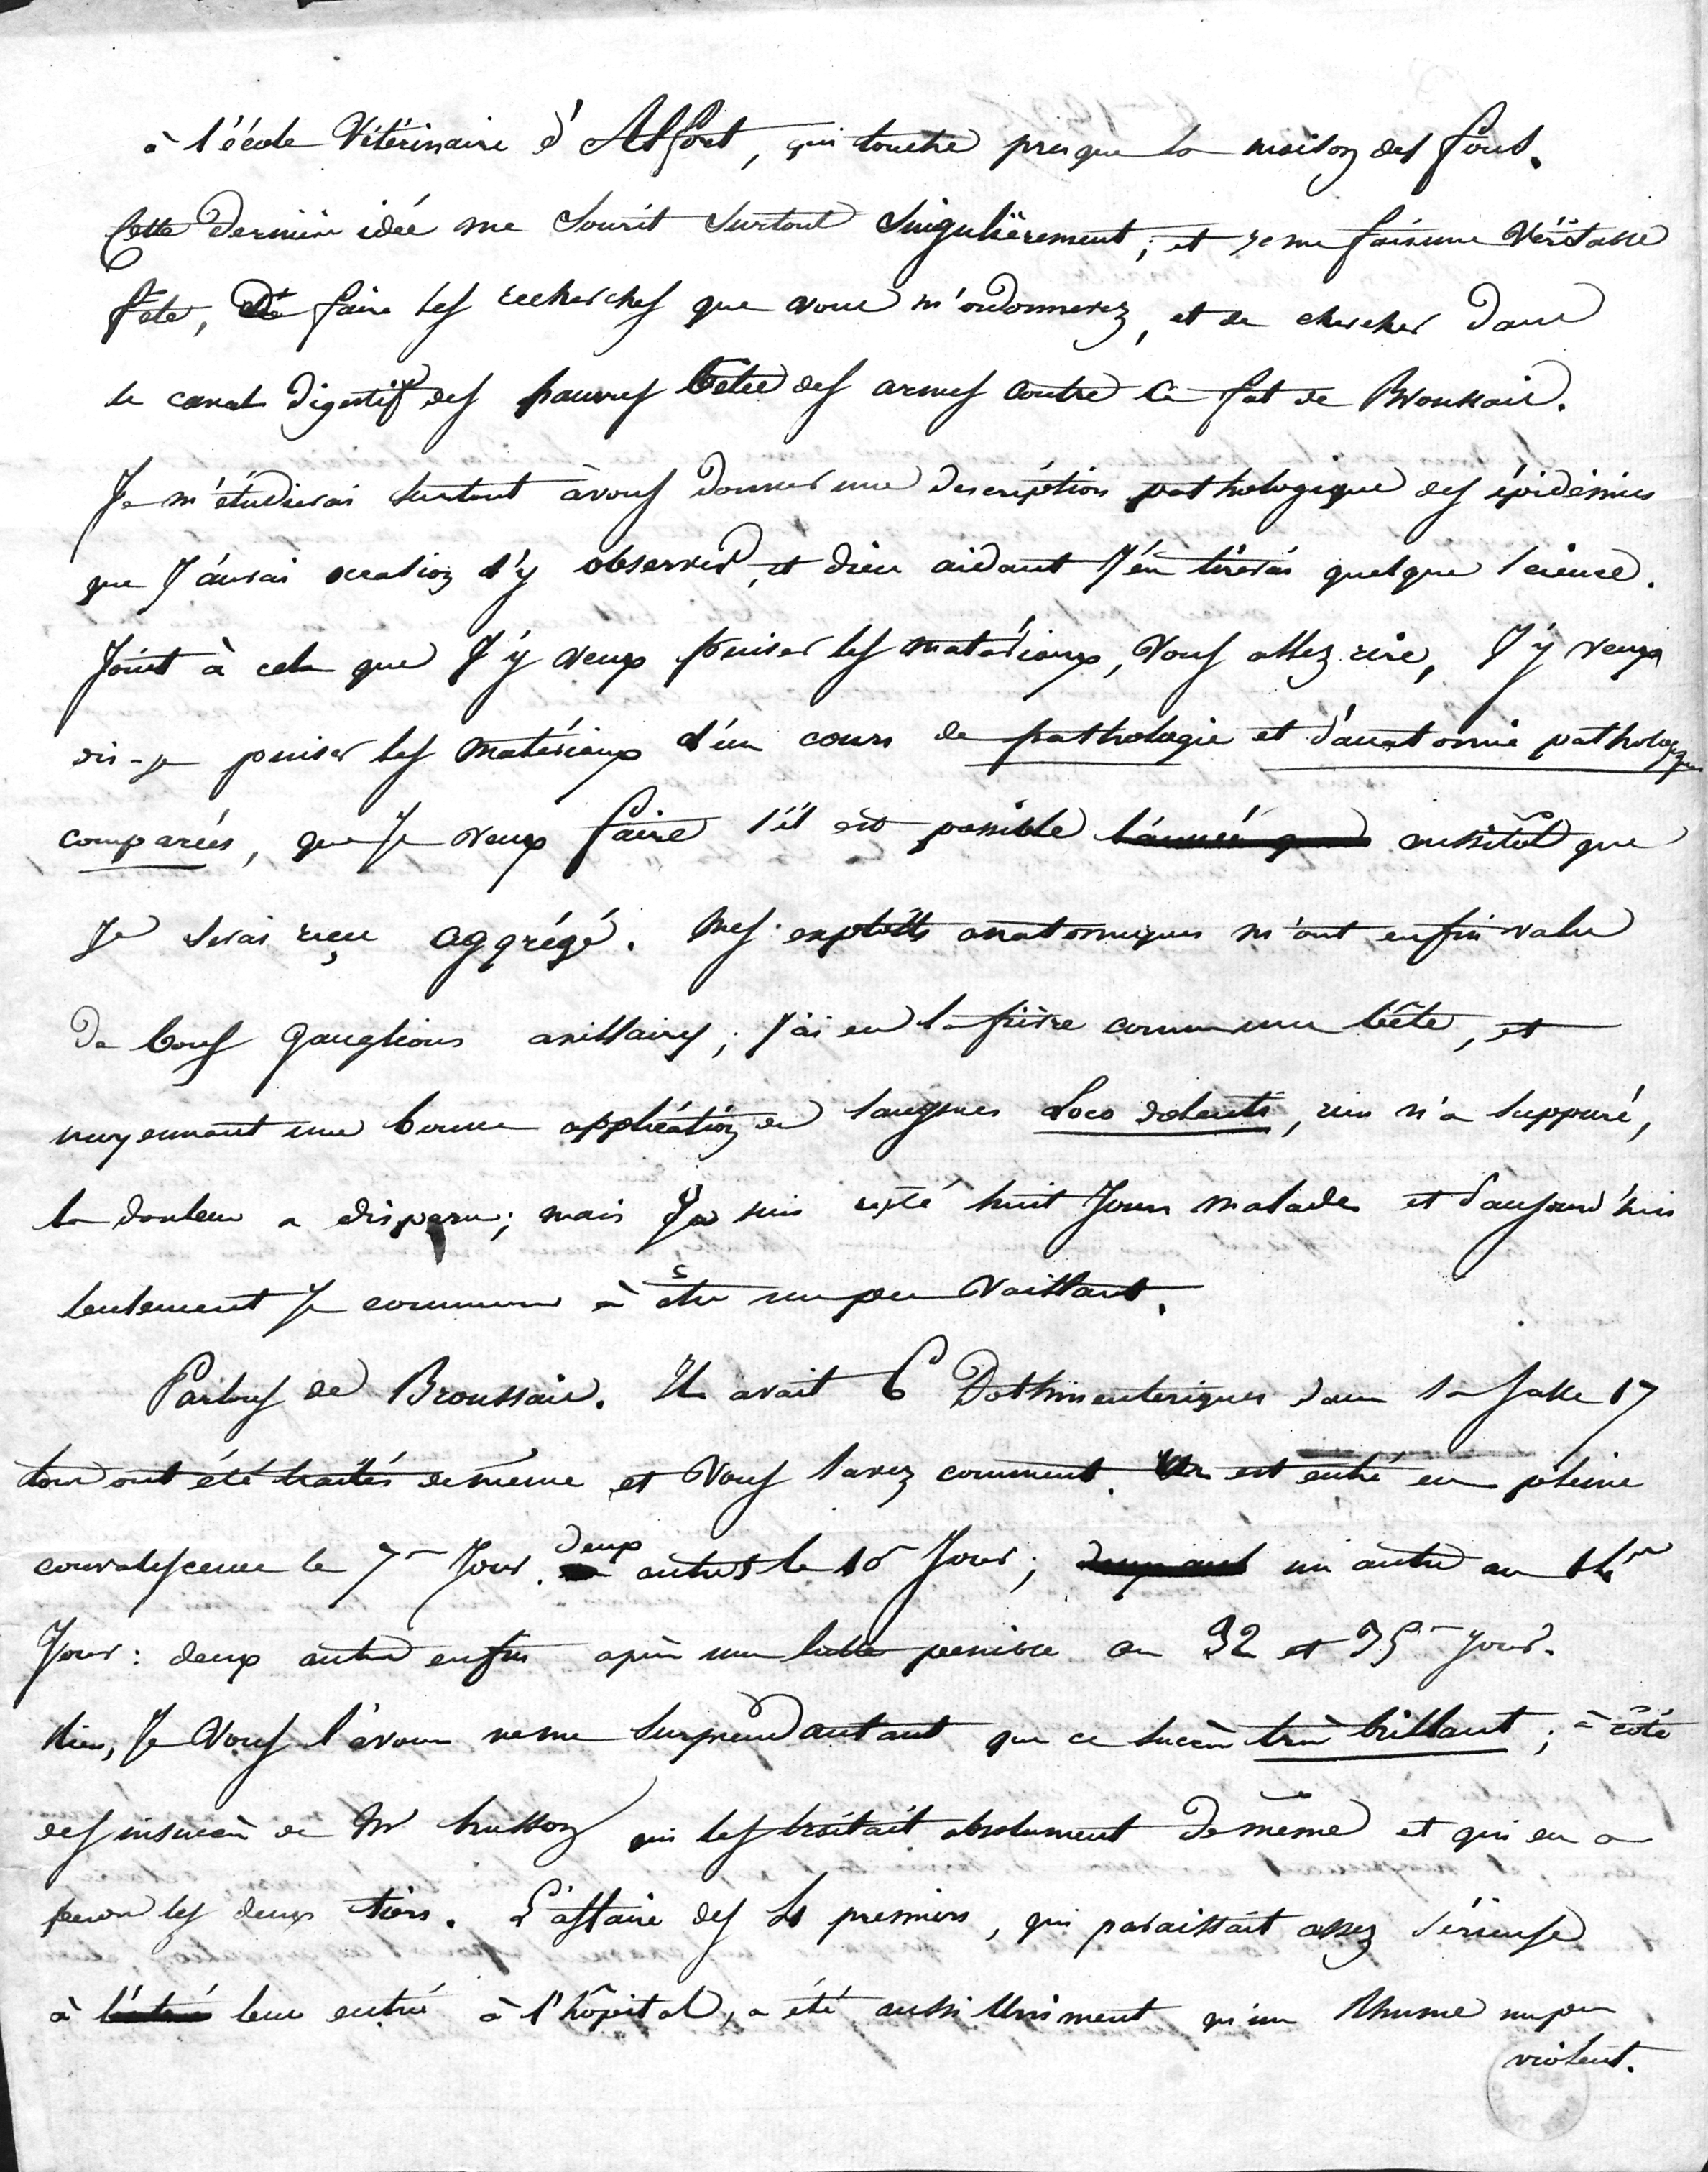 à l'école Vétérinaire d'Alfort, qui touche presque la maison des fous.
Cette dernière idée me sourit surtout singulièrement; et je me fais une Véritable
fête, de faire les recherches que vous m'ordonnerez, et de chercher dans
le canal digestif des pauvres bêtes des armes contre ce fat de Broussais.
Je m'étudierai surtout à vous donner une description pathologique des épidémies
que J'aurai occasion d'y observer, et dieu aidant J'en tirerai quelque science.
Joint à cela que J'y veux puiser les matériaux, Vous allez rire, J'y veux
dis-je puiser les matériaux d'un cours de pathologie et d'anatomie pathologiques
comparées, que Je veux faire s'il est possible l'année que aussitôt que
Je serai reçu aggrégé. Mes exploits anatomiques m'ont enfin valu
de bons ganglions axillaires; j'ai eu la fièvre comme une bête, et
moyennant une bonne application de sangsues Loco dolenti, rien n'a suppuré,
la douleur a disparu; mais Je suis resté huit Jours malade et d'aujourd'hui
seulement Je commence à être un peu Vaillant.
Parlons de Broussais. Il avait 6 Dothinenteriques dans la salle 17
tous ont été traités de même et Vous savez comment. Un est entré en pleine
convalescence le 7e Jour. deux autres le 10 Jour; deux aut un autre au 14e
Jour: deux autres enfin après une lutte penible au 32 et 35e jour.
Rien, Je Vous l'avoue ne me surprend autant que ce succès très brillant; à côté
des insuccès de Mr husson qui les traitait absolument de même et qui en a
perdu les deux tiers. L'affaire des 4 premiers, qui paraissait assez sérieuse
à leur entrée à l'hôpital, a été aussi uniment qu'un Rhume un peu
violent.